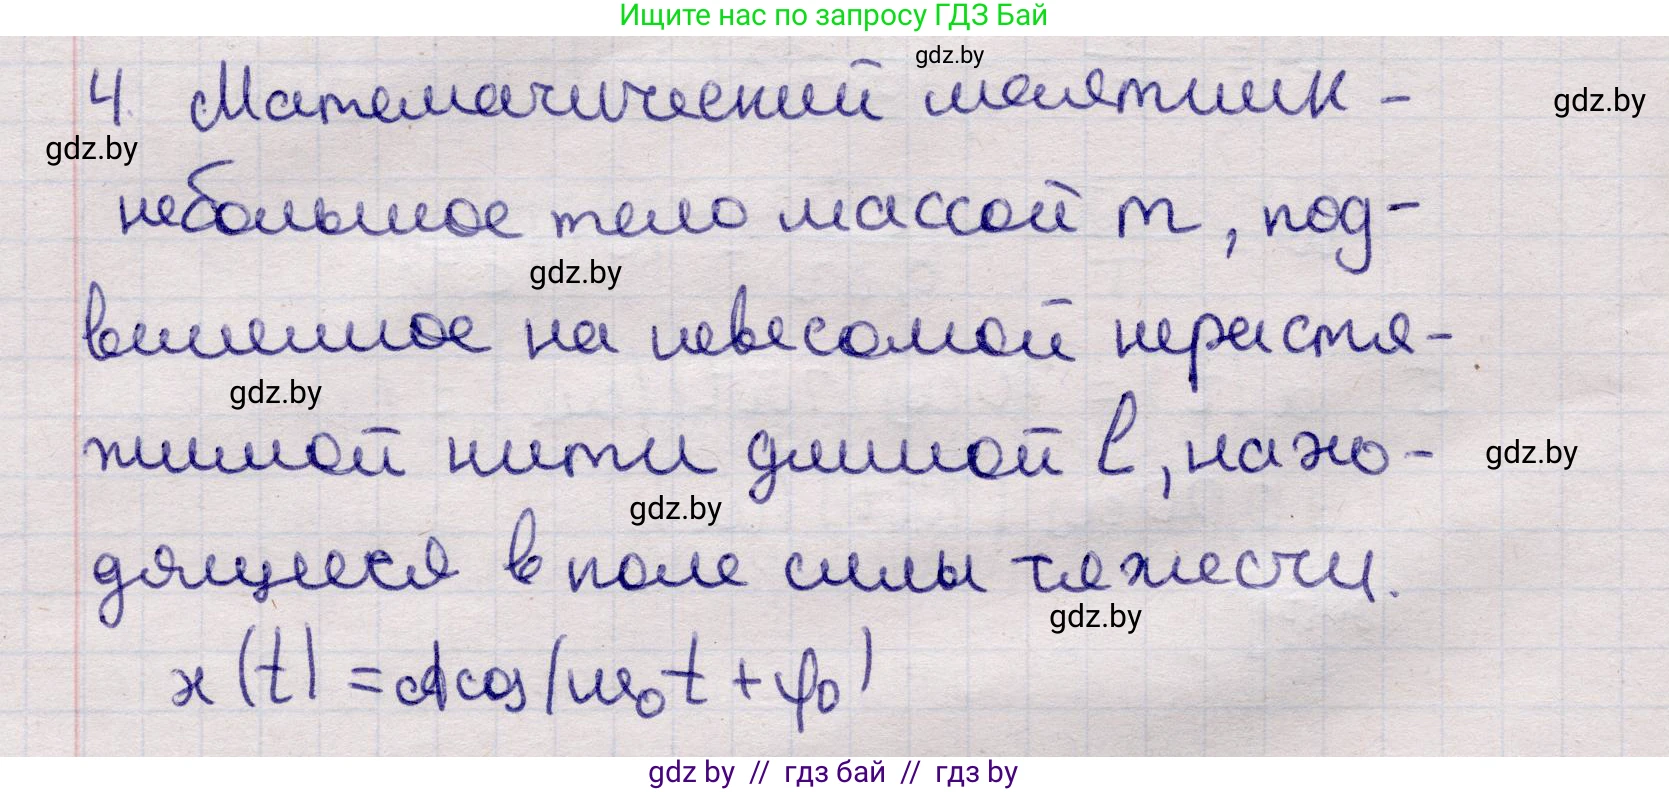 Ищите нас по запросу ГДЗ Бай
gdz.by
4. Математический маятник -
gdz.by
gdz.by
небольшое тело массой m, под-
gdz.by
вешенное на невесомой нерастя-
gdz.by
жимой нити длиной l, нахо-
gdz.by
gdz.by
дящееся в поле силы тяжести.
gdz.by
x(t) = A cos(ω₀t + φ₀)
gdz by // гдз бай // гдз by